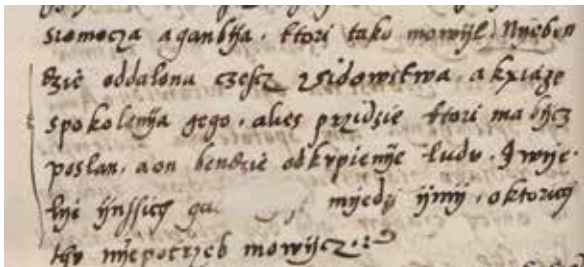 sromocza aganbÿa. ktori tako mowÿl Nÿeben
dzie oddalona czescz zÿdowstwa, a kxiąze
spokolenÿa gego. alies przidzie ktori ma bÿcz
poslan. a on bendzie odkvpienÿe ludv. Jwÿe-
lÿe ÿnssich mÿedzi ÿmÿ, oktorich
thv nÿepotrzeb mowÿcz.